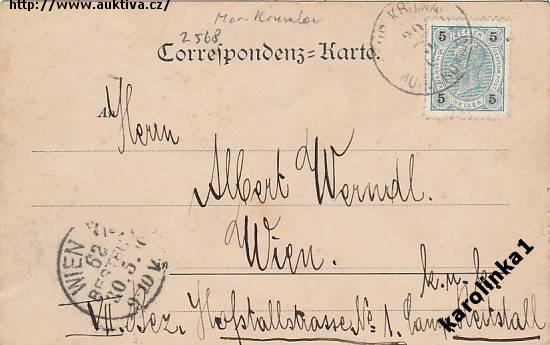 http://www.auktiva.cz/
Mor. Krumlov
2568
Correspondenz-Karte.
5 5
5 5
HELLER
An
Herrn
Albert Werndl.
Wien.
k. u. k.
VII. Bez. Hofstallstrasse No 1. Camp. Reitstall
WIEN
62
BESTELLT
10.5.
9.10V.
karolinka1